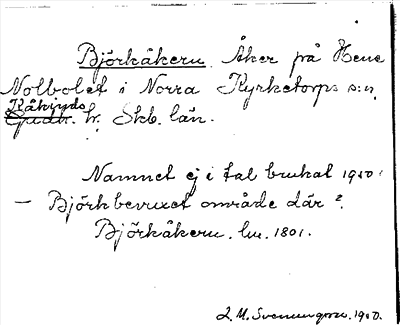 Björkåkern. Åker på Hene
Nolbolet i Norra Kyrketorps s:n,
Kåkinds
Gudh. hr. Skb. län.
Namnet ej i tal brukat 1950.
– Björkbevuxet område där?
Björkåkern. lm. 1801.
L. M. Svennungsson. 1950.